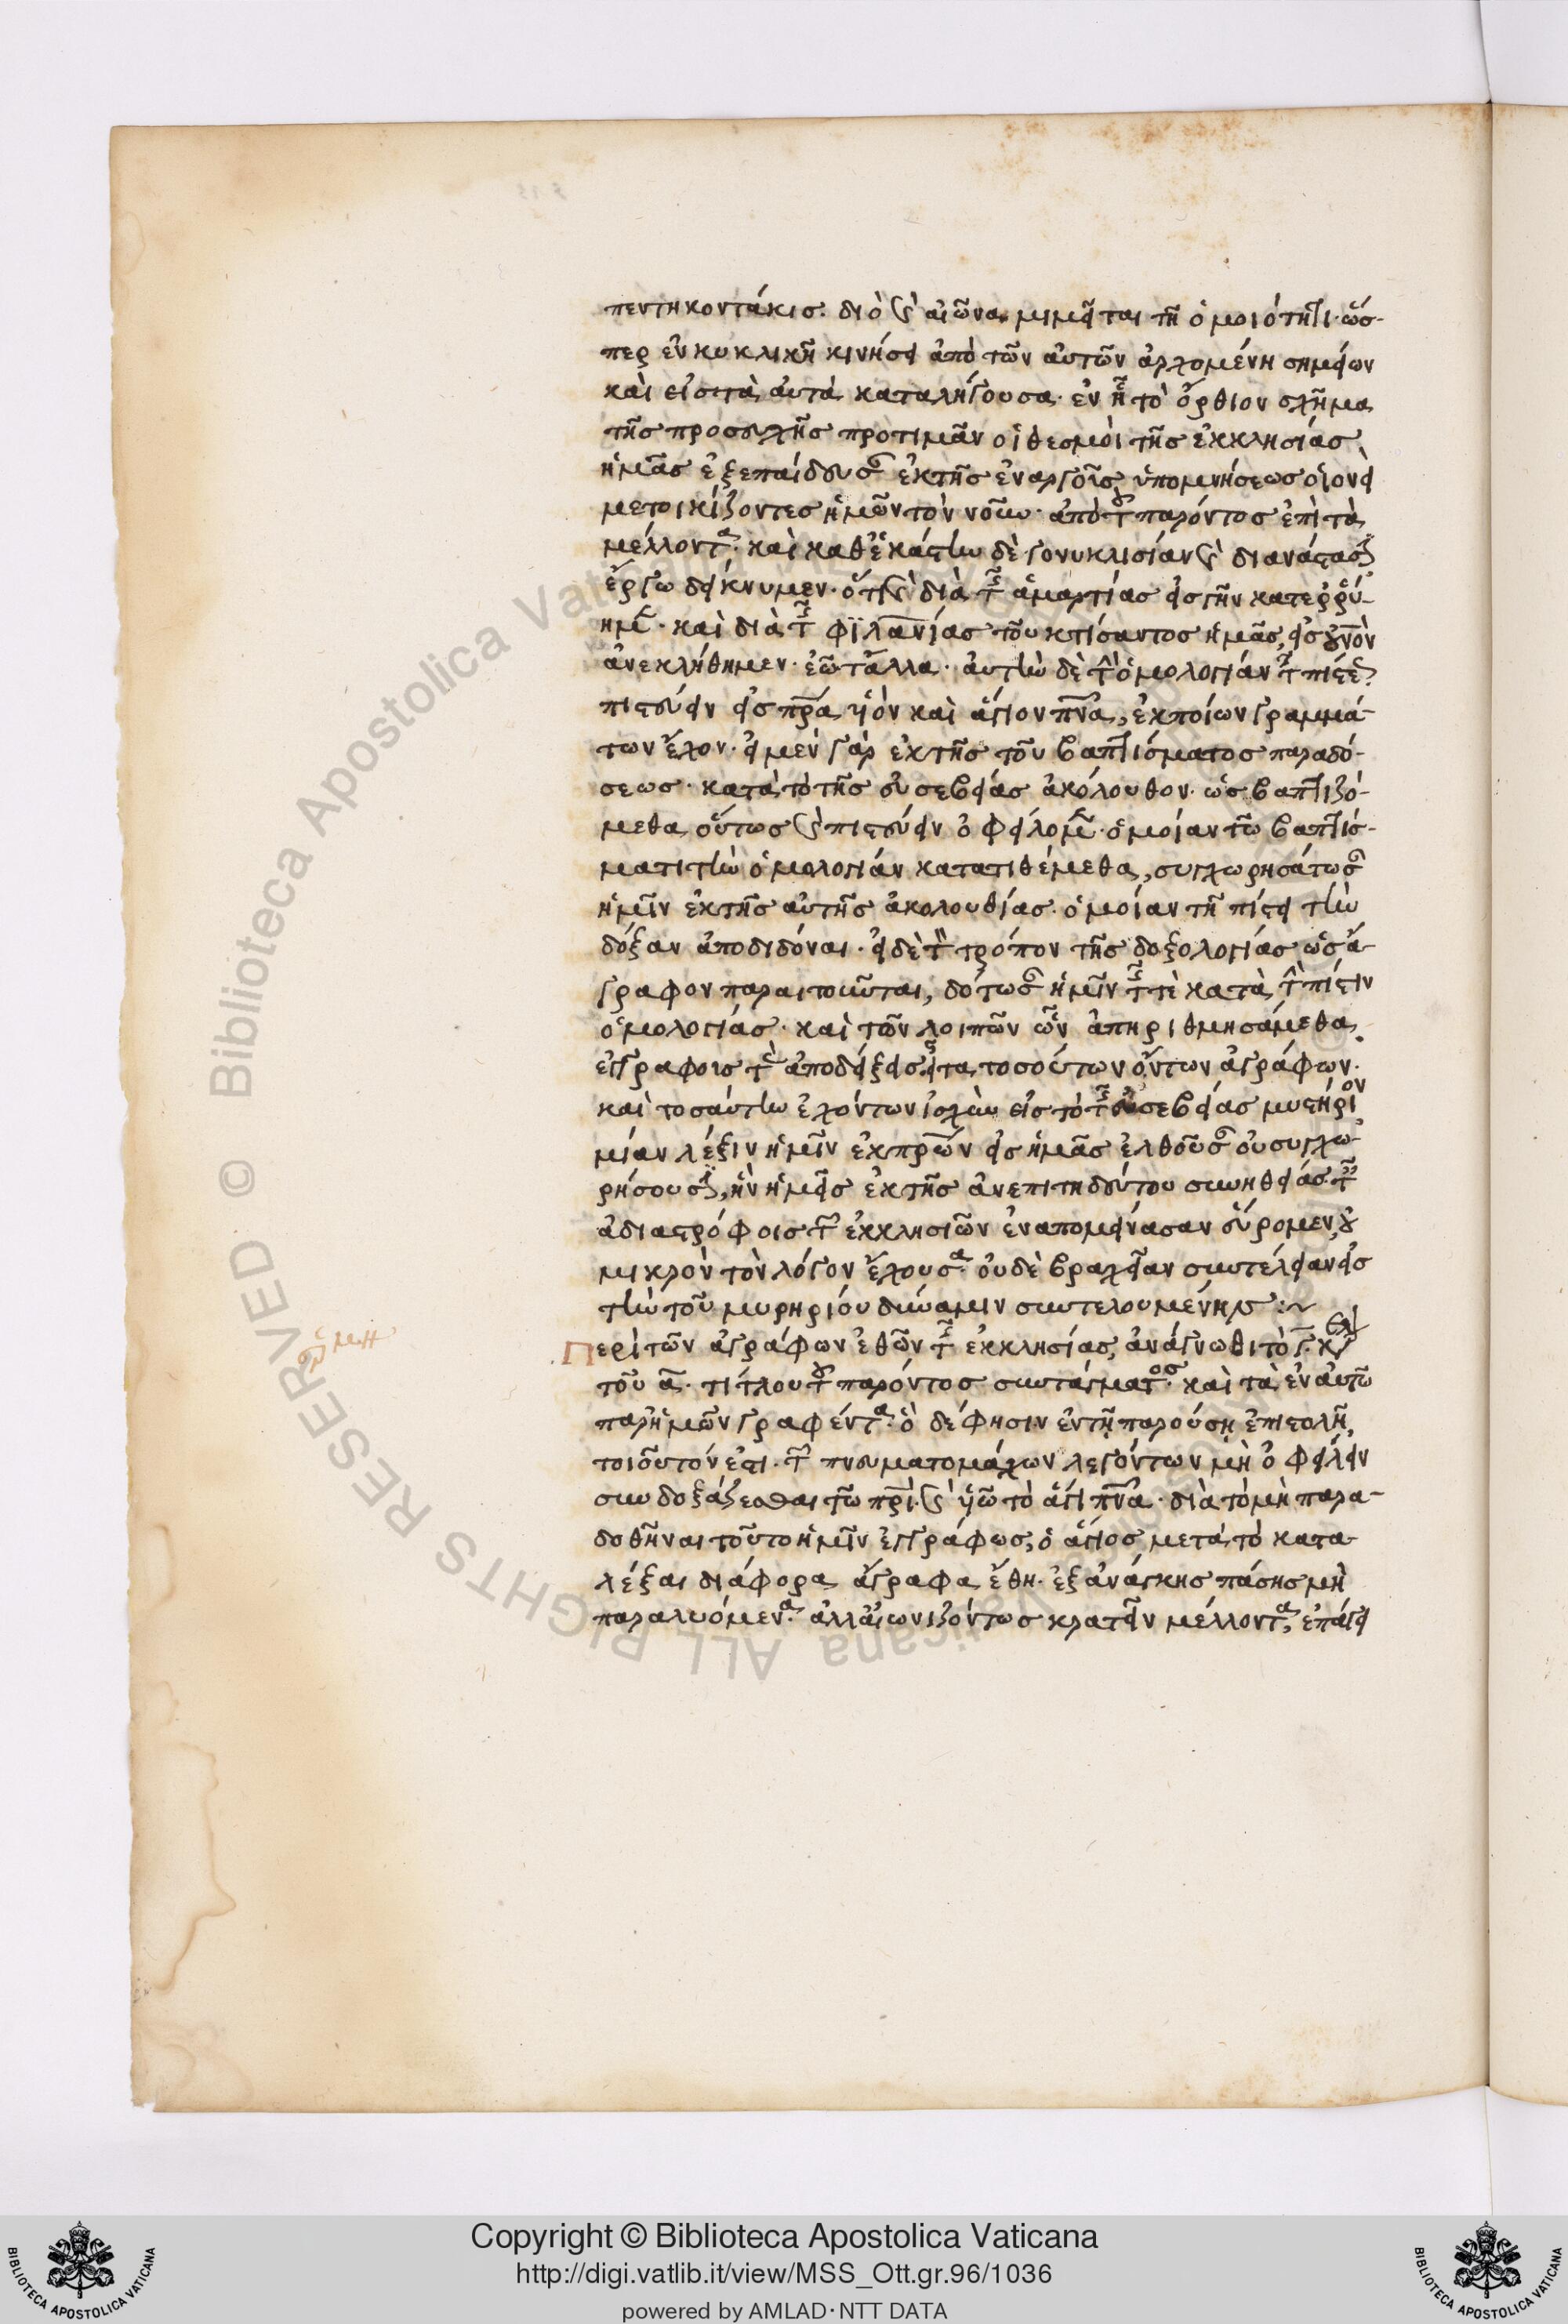 πεντηκοντάκις· διὸ καὶ αἰῶνα μιμεῖται τῇ ὁμοιότητι· ὥσ-
περ ἐν κυκλικῇ κινήσει ἀπὸ τῶν αὐτῶν ἀρχομένη σημείων
καὶ εἰς τὰ αὐτὰ καταλήγουσα· ἐν ᾗ τὸ ὄρθιον σχῆμα
τῆς προσευχῆς προτιμᾶν οἱ θεσμοὶ τῆς ἐκκλησίας
ἡμᾶς ἐξεπαίδευσαν ἐκ τῆς ἐναργοῦς ὑπομνήσεως οἱονεὶ
μετοικίζοντες ἡμῶν τὸν νοῦν· ἀπὸ τοῦ παρόντος ἐπὶ τὰ
μέλλοντα· καὶ καθ' ἑκάστην δὲ γονυκλισίαν καὶ διανάστασιν
ἔργω δείκνυμεν· ὅτι καὶ διὰ τῆς ἁμαρτίας εἰς γῆν κατερρύ-
ημεν· καὶ διὰ τῆς φιλανίας τοῦ κτίσαντος ἡμᾶς, εἰς οὐνὸν
ἀνεκλήθημεν· ἐῶ τἄλλα· αὐτὴν δὲ τὴν ὁμολογίαν τῆς πίστεως
πιστεύειν εἰς πρα υἱὸν καὶ ἅγιον πνα, ἐκ ποίων γραμμά-
των ἔχομεν· εἰ μὲν γὰρ ἐκ τῆς τοῦ βαπτίσματος παραδό-
σεως· κατὰ τὸ τῆς εὐσεβείας ἀκόλουθον· ὡς βαπτιζό-
μεθα οὕτως καὶ πιστεύειν ὀφείλομεν· ὁμοίαν τῶ βαπτίσ-
ματι τὴν ὁμολογίαν κατατιθέμεθα, συγχωρησάτωσαν
ἡμῖν ἐκ τῆς αὐτῆς ἀκολουθίας· ὁμοίαν τῇ πίστει τὴν
δόξαν ἀποδιδόναι· εἰ δὲ τὸν τρόπον τῆς δοξολογίας ὡς ἄ-
γραφον παραιτοῦνται, δότωσαν ἡμῖν τῆς τε κατὰ τὴν πίστιν
ὁμολογίας· καὶ τῶν λοιπῶν ὧν ἀπηριθμησάμεθα
ἐγγράφοις τὰς ἀποδείξεις· εἶτα τοσούτων ὄντων ἀγράφων·
καὶ τοσαύτην ἐχόντων ἰσχὺν εἰς τὸ τῆς εὐσεβείας μυστήριον
μίαν λέξιν ἡμῖν ἐκ πρων εἰς ἡμᾶς ἐλθοῦσαν οὐ συγχω-
ρήσουσιν, ἣν ἡμεῖς ἐκ τῆς ἀνεπιτηδεύτου συνηθείας ταῖς
ἀδιαστρόφοις τῶν ἐκκλησιῶν ἐναπομείνασαν εὕρομεν, οὐ
μικρὸν τὸν λόγον ἔχουσαν· οὐδὲ βραχεῖαν συντέλειαν εἰς
τὴν τοῦ μυρηρίου δύναμιν συντελουμένης :~
Περὶ τῶν ἀγράφων ἐθῶν τῆς ἐκκλησίας, ἀνάγνωθι τὸ γ. κεφάλαιον
τοῦ α. τίτλου τοῦ παρόντος συντάγματος· καὶ τὰ ἐν αὐτῶ
παρ' ἡμῶν γραφέντα· ὃ δέ φησιν ἐν τῇ παρούσῃ ἐπιστολῇ,
τοιοῦτόν ἐστι· τῶν πνευματομάχων λεγόντων μὴ ὀφείλειν
συνδοξάζεσθαι τῶ πρὶ· καὶ υἱῶ τὸ ἅγιον πνα· διὰ τὸ μὴ παρα-
δοθῆναι τοῦτο ἡμῖν ἐγγράφως, ὁ ἅγιος μετὰ τὸ κατα-
λέξαι διάφορα ἄγραφα ἔθη· ἐξ ἀνάγκης πάσης μὴ
παραλυόμενα· ἀλλ' αἰωνιζόντως κρατεῖν μέλλοντα, ἐπάγει
Copyright © Biblioteca Apostolica Vaticana
http://digi.vatlib.it/view/MSS_Ott.gr.96/1036
powered by AMLAD·NTT DATA